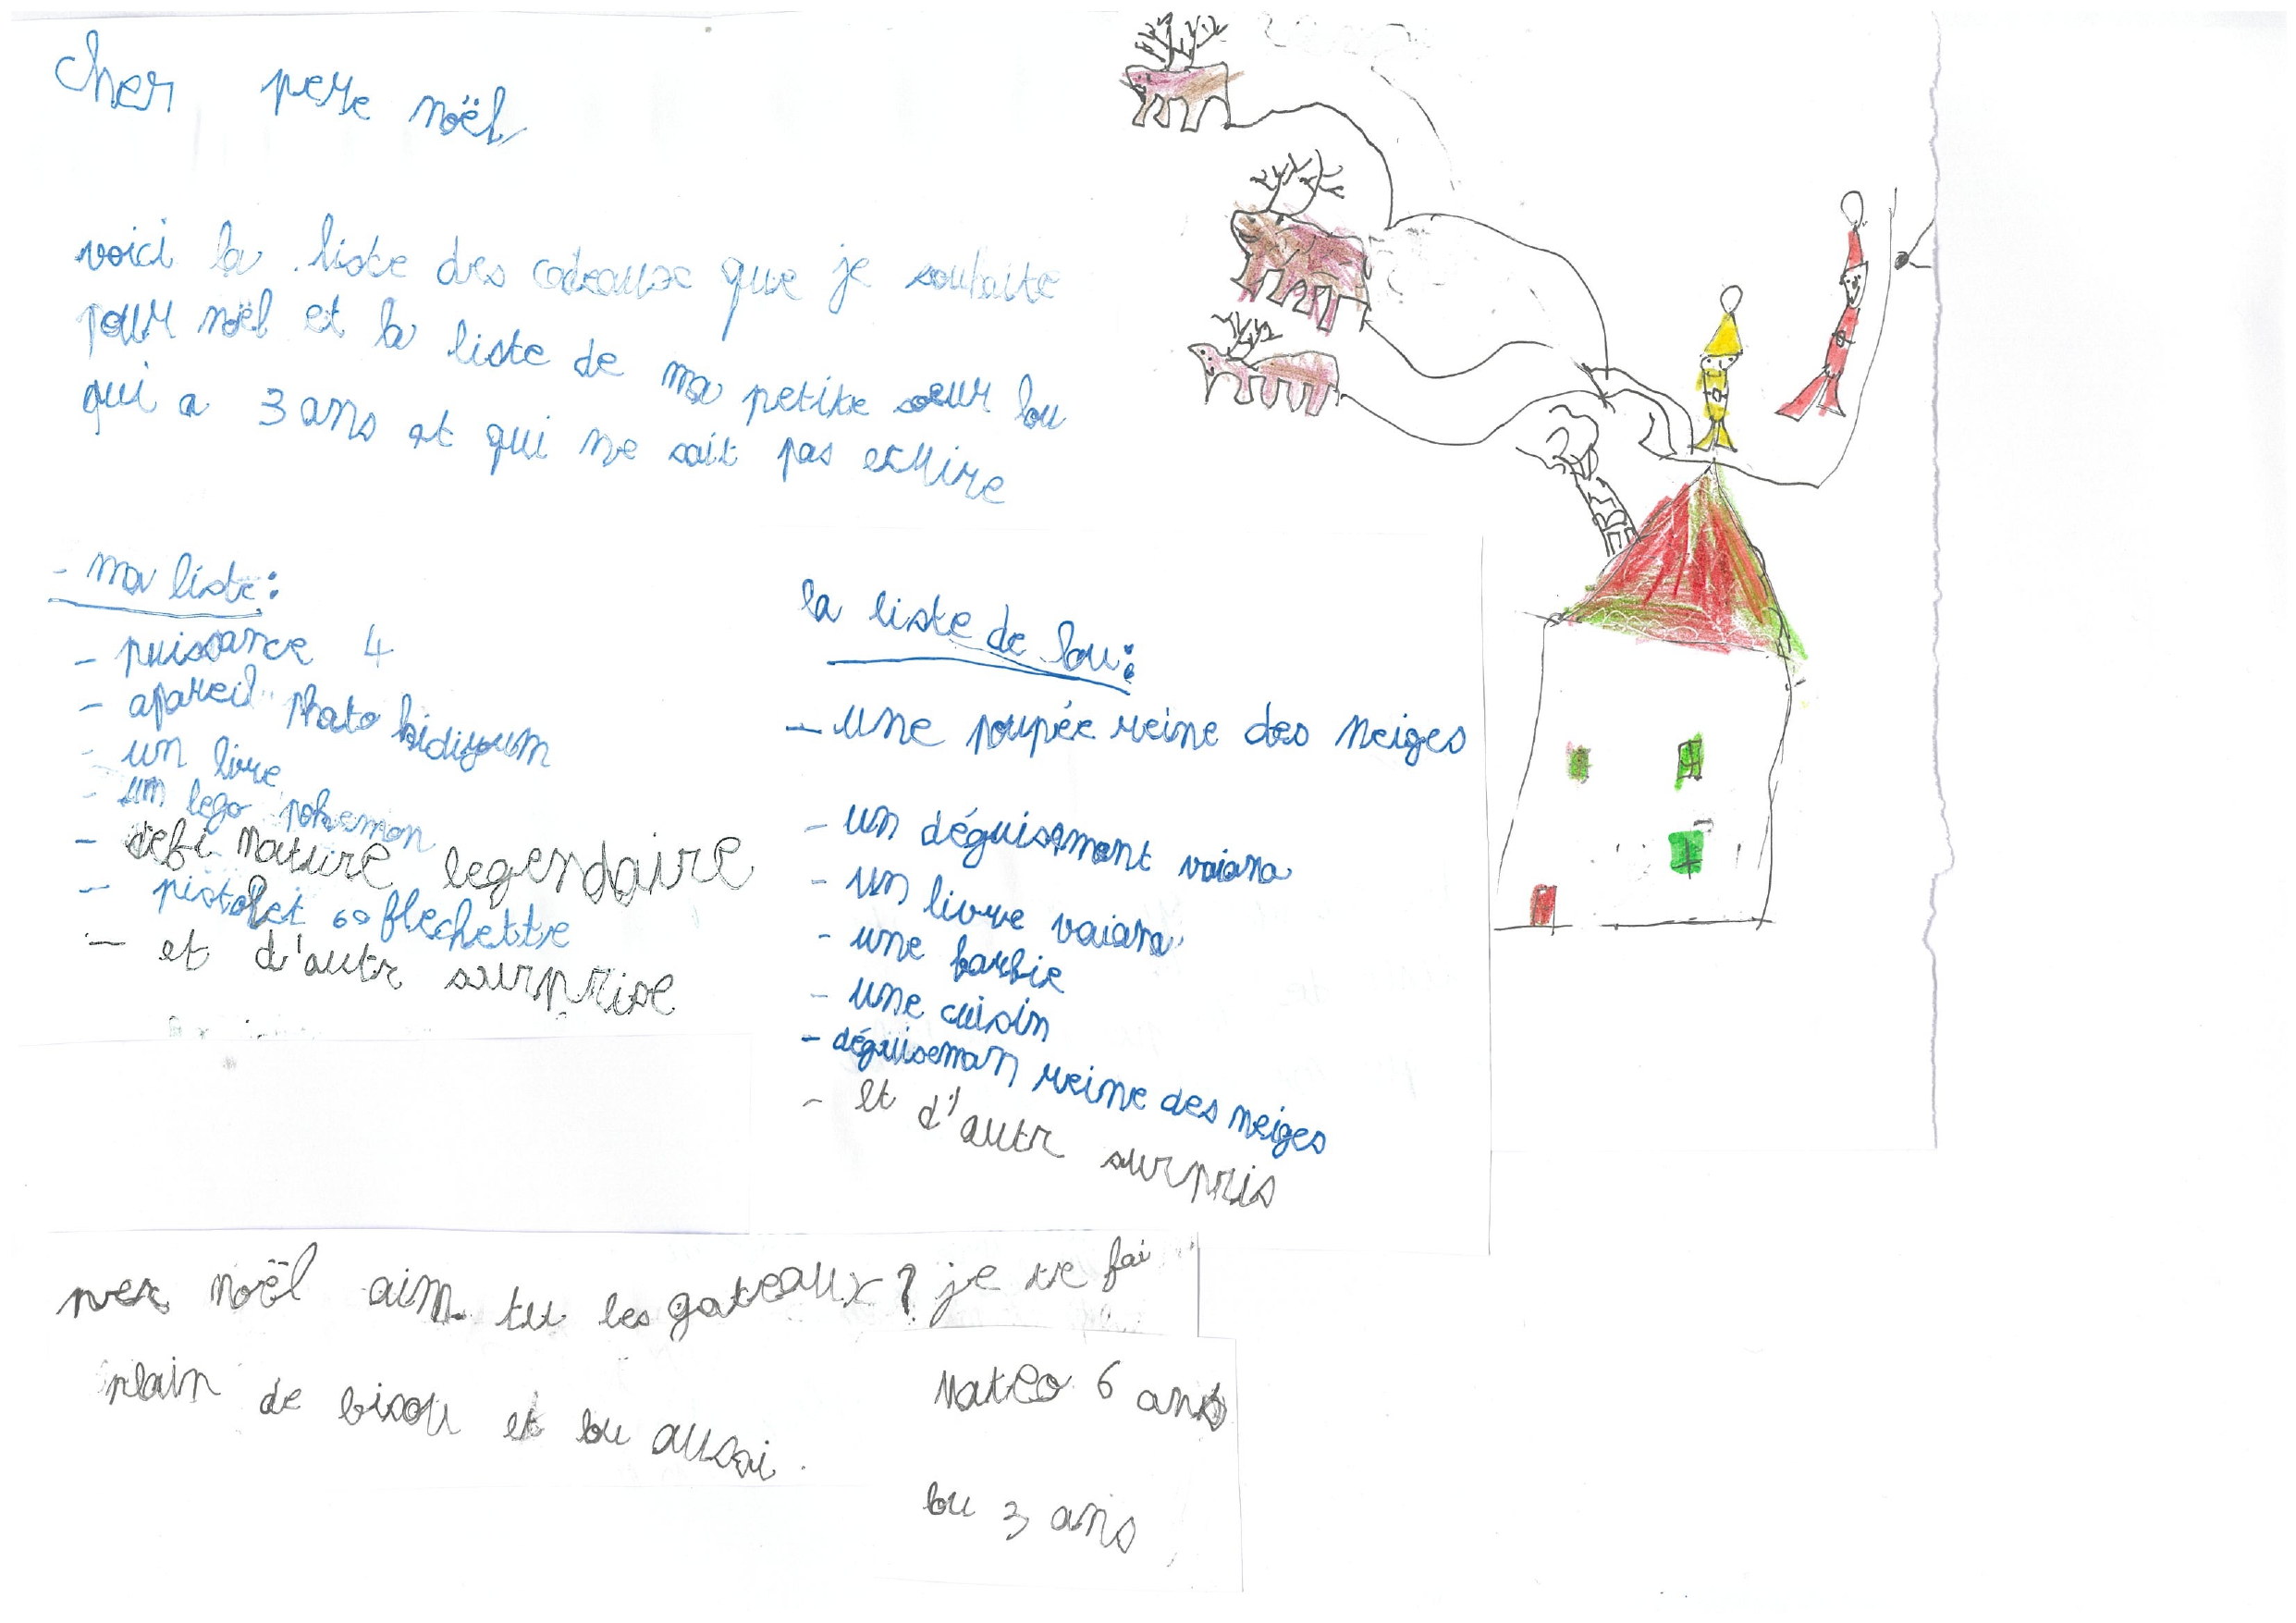 cher pere noël
voici la liste des cadeaux que je souhaite
pour noël et la liste de ma petite soeur lou
qui a 3 ans et qui ne sait pas ecrire
- ma liste:
- puissance 4
- apareil photo kidiyoum
- un livre
- un lego pokemon
- defi nature legendaire
- pistolet 60 flechette
- et d'autr surprise
la liste de lou:
- une poupée reine des neiges
- un déguisemant vaiana
- un livre vaiana
- une barbie
- une cuisin
- déguiseman reine des neiges
- et d'autr surpris
per noël aim tu les gateaux? je te fai
plain de bisou et lou aussi.
Mateo 6 ans
lou 3 ans